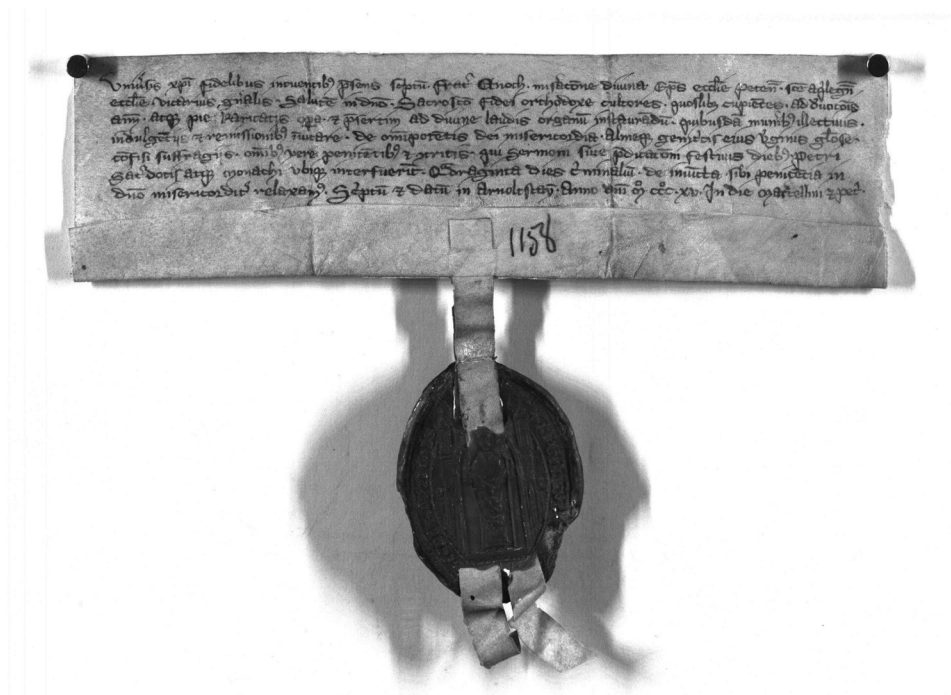 Vniusis xpi fidelibus intuentib' psens sc'ptu. frat' Enoch. misatone diuina Ep's eccl'ie
eccl'ie vicarius gn'alis Salute in dno. Sacrosce fidei orthodoxe cultores. quoslib; cupietes. ad deuotois
atq; pie karitatis opa. et p'sertim ad diuine laudis organu instauradu. quibusda munib;
indulgetijs et remissionib; inuitare. de omipotetis dei misericordia. almeq; genitcis eius v'ginis gl'ose.
cofisi suffragijs. omib; vere penitetib; et 9tritis. qui sermoni siue p'dicatoni festiuis dieb; Petri
Sac'dotis atq; monachi vbiq; interfuerit. Q'draginta dies c'minaliu. de iniucta sibi penitecia in
dno misericordit' relaxam'. Sc'ptu et datu in Arnoltstayn. Anno dni M. CCC. XV. In die Marcellini et pet'.
1158